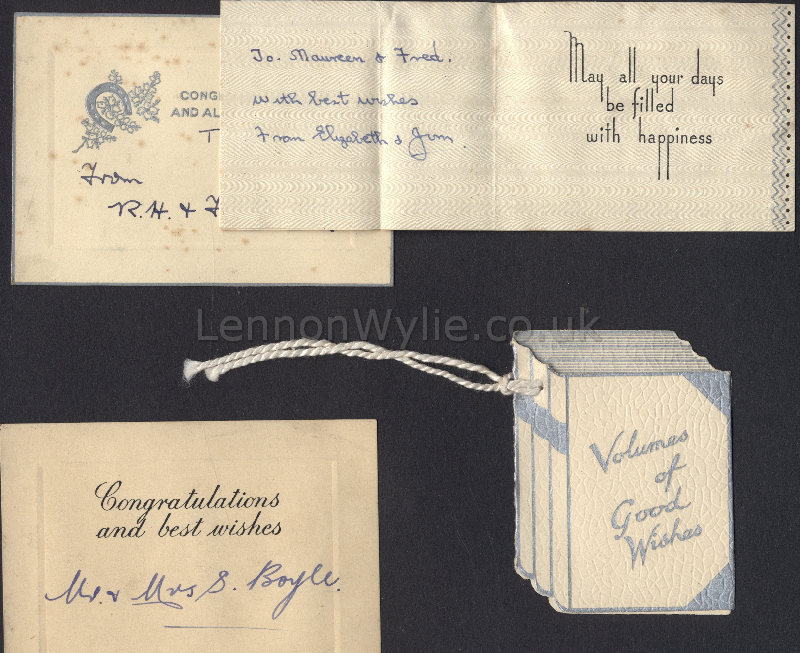 CONG
AND AL
T
From
R.H. & F
To. Maureen & Fred.
with best wishes
From Elizabeth & Jim
May all your days
be filled
with happiness
LennonWylie.co.uk
Volumes
of
Good
Wishes
Congratulations
and best wishes
Mr. & Mrs S. Boyle.